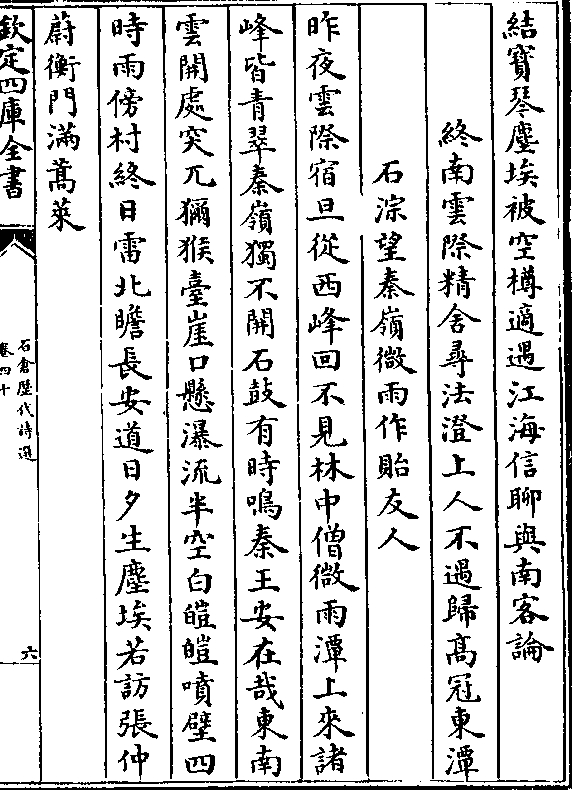 結寳琴塵埃被空樽適遇江海信聊與南客論
終南雲際精舍尋法澄上人不遇歸髙冠東潭
石淙望秦嶺微雨作貽友人
昨夜雲際宿旦從西峰回不見林中僧微雨潭上來諸
峰皆青翠秦嶺獨不開石鼓有時鳴秦王安在哉東南
雲開處突兀獼猴臺崖口懸瀑流半空白皚皚噴壁四
時雨傍村終日雷北瞻長安道日夕生塵埃若訪張仲
蔚衡門滿蒿萊
欽定四庫全書
石倉歴代詩選
卷四十
六